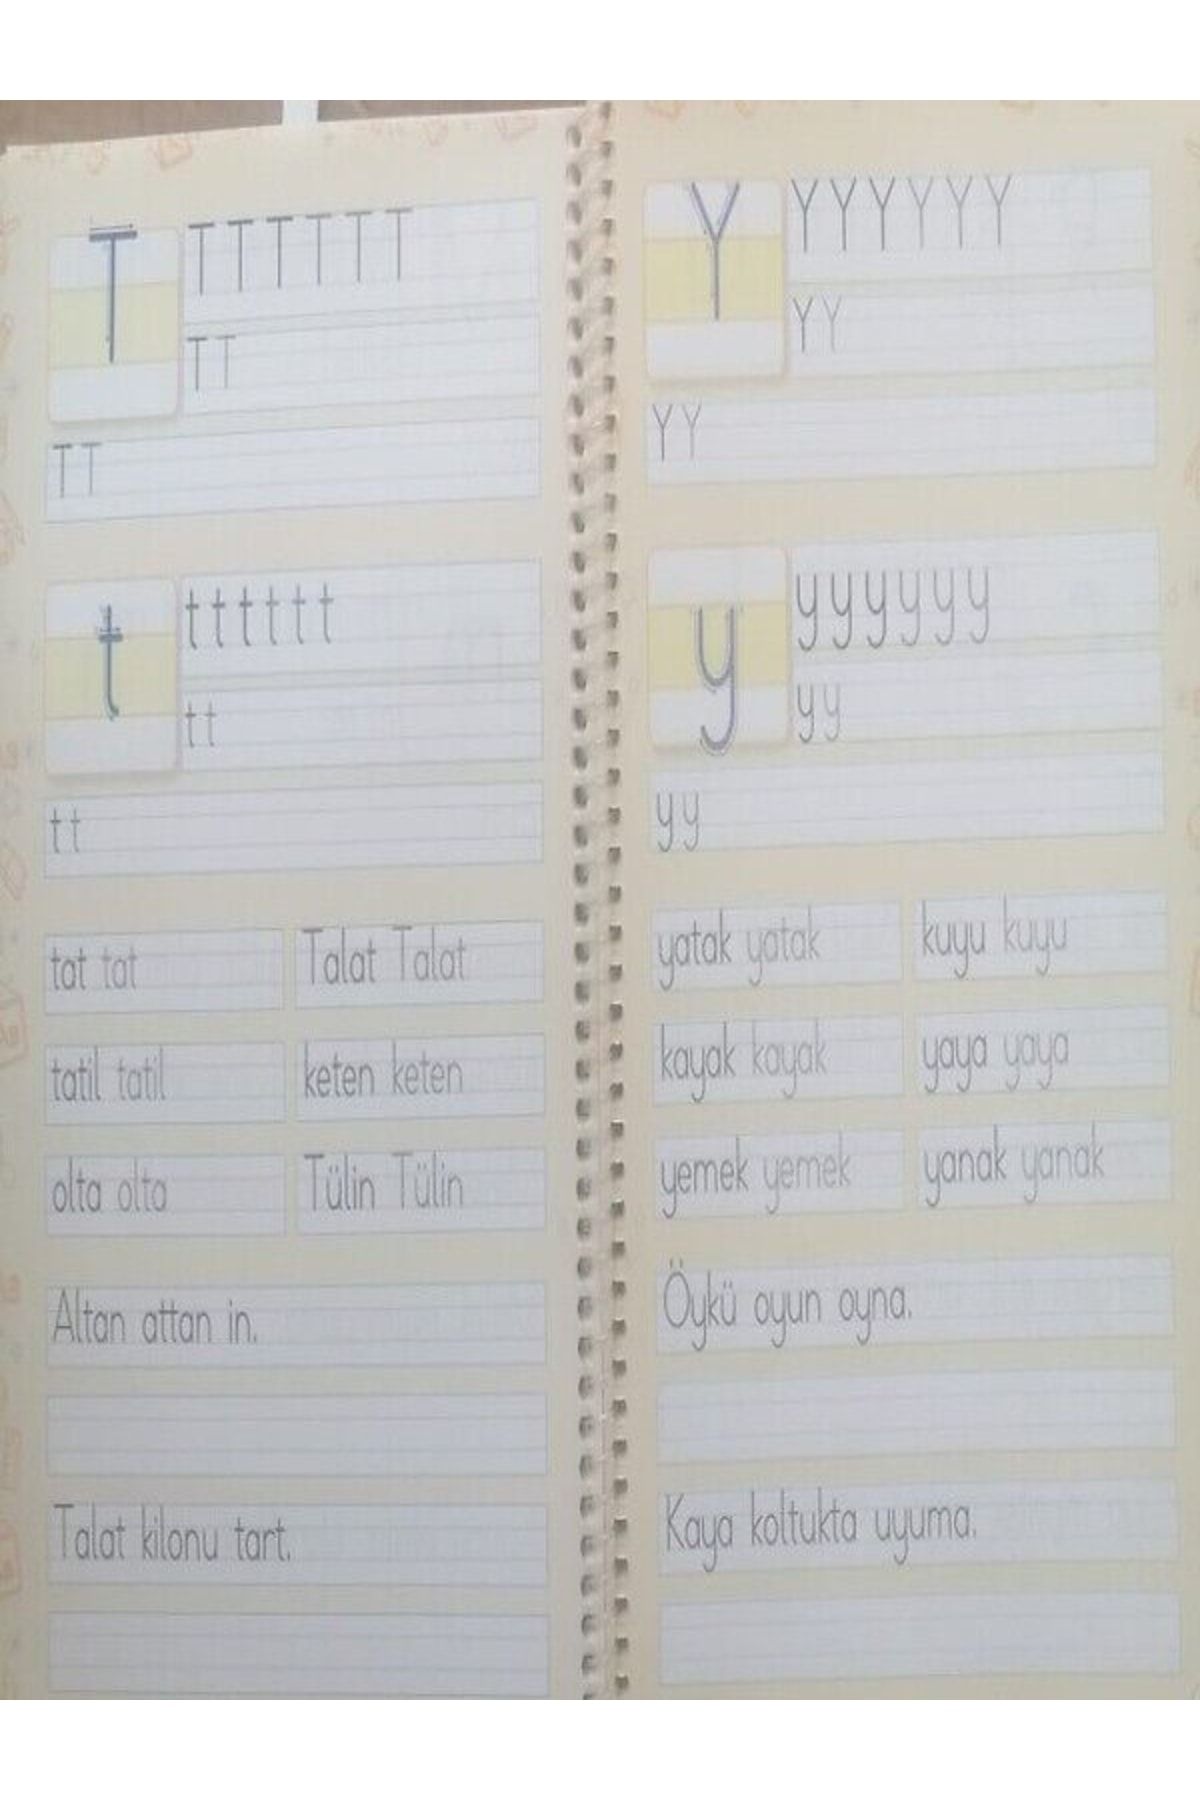 T
T T T T T T
T T
T T
t
t t t t t t
t t
t t
tat tat
Talat Talat
tatil tatil
keten keten
olta olta
Tülin Tülin
Altan attan in.
Talat kilonu tart.
Y
Y Y Y Y Y Y
Y Y
Y Y
y
y y y y y y
y y
y y
yatak yatak
kuyu kuyu
kayak kayak
yaya yaya
yemek yemek
yanak yanak
Öykü oyun oyna.
Kaya koltukta uyuma.